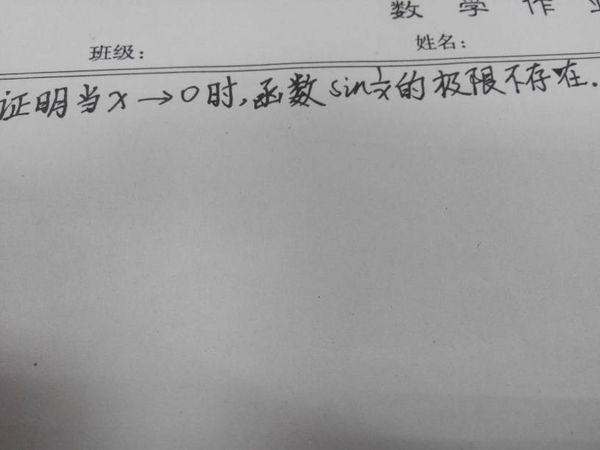 数 学 作
班级: 姓名:
证明当x→0时,函数sin1/x的极限不存在.